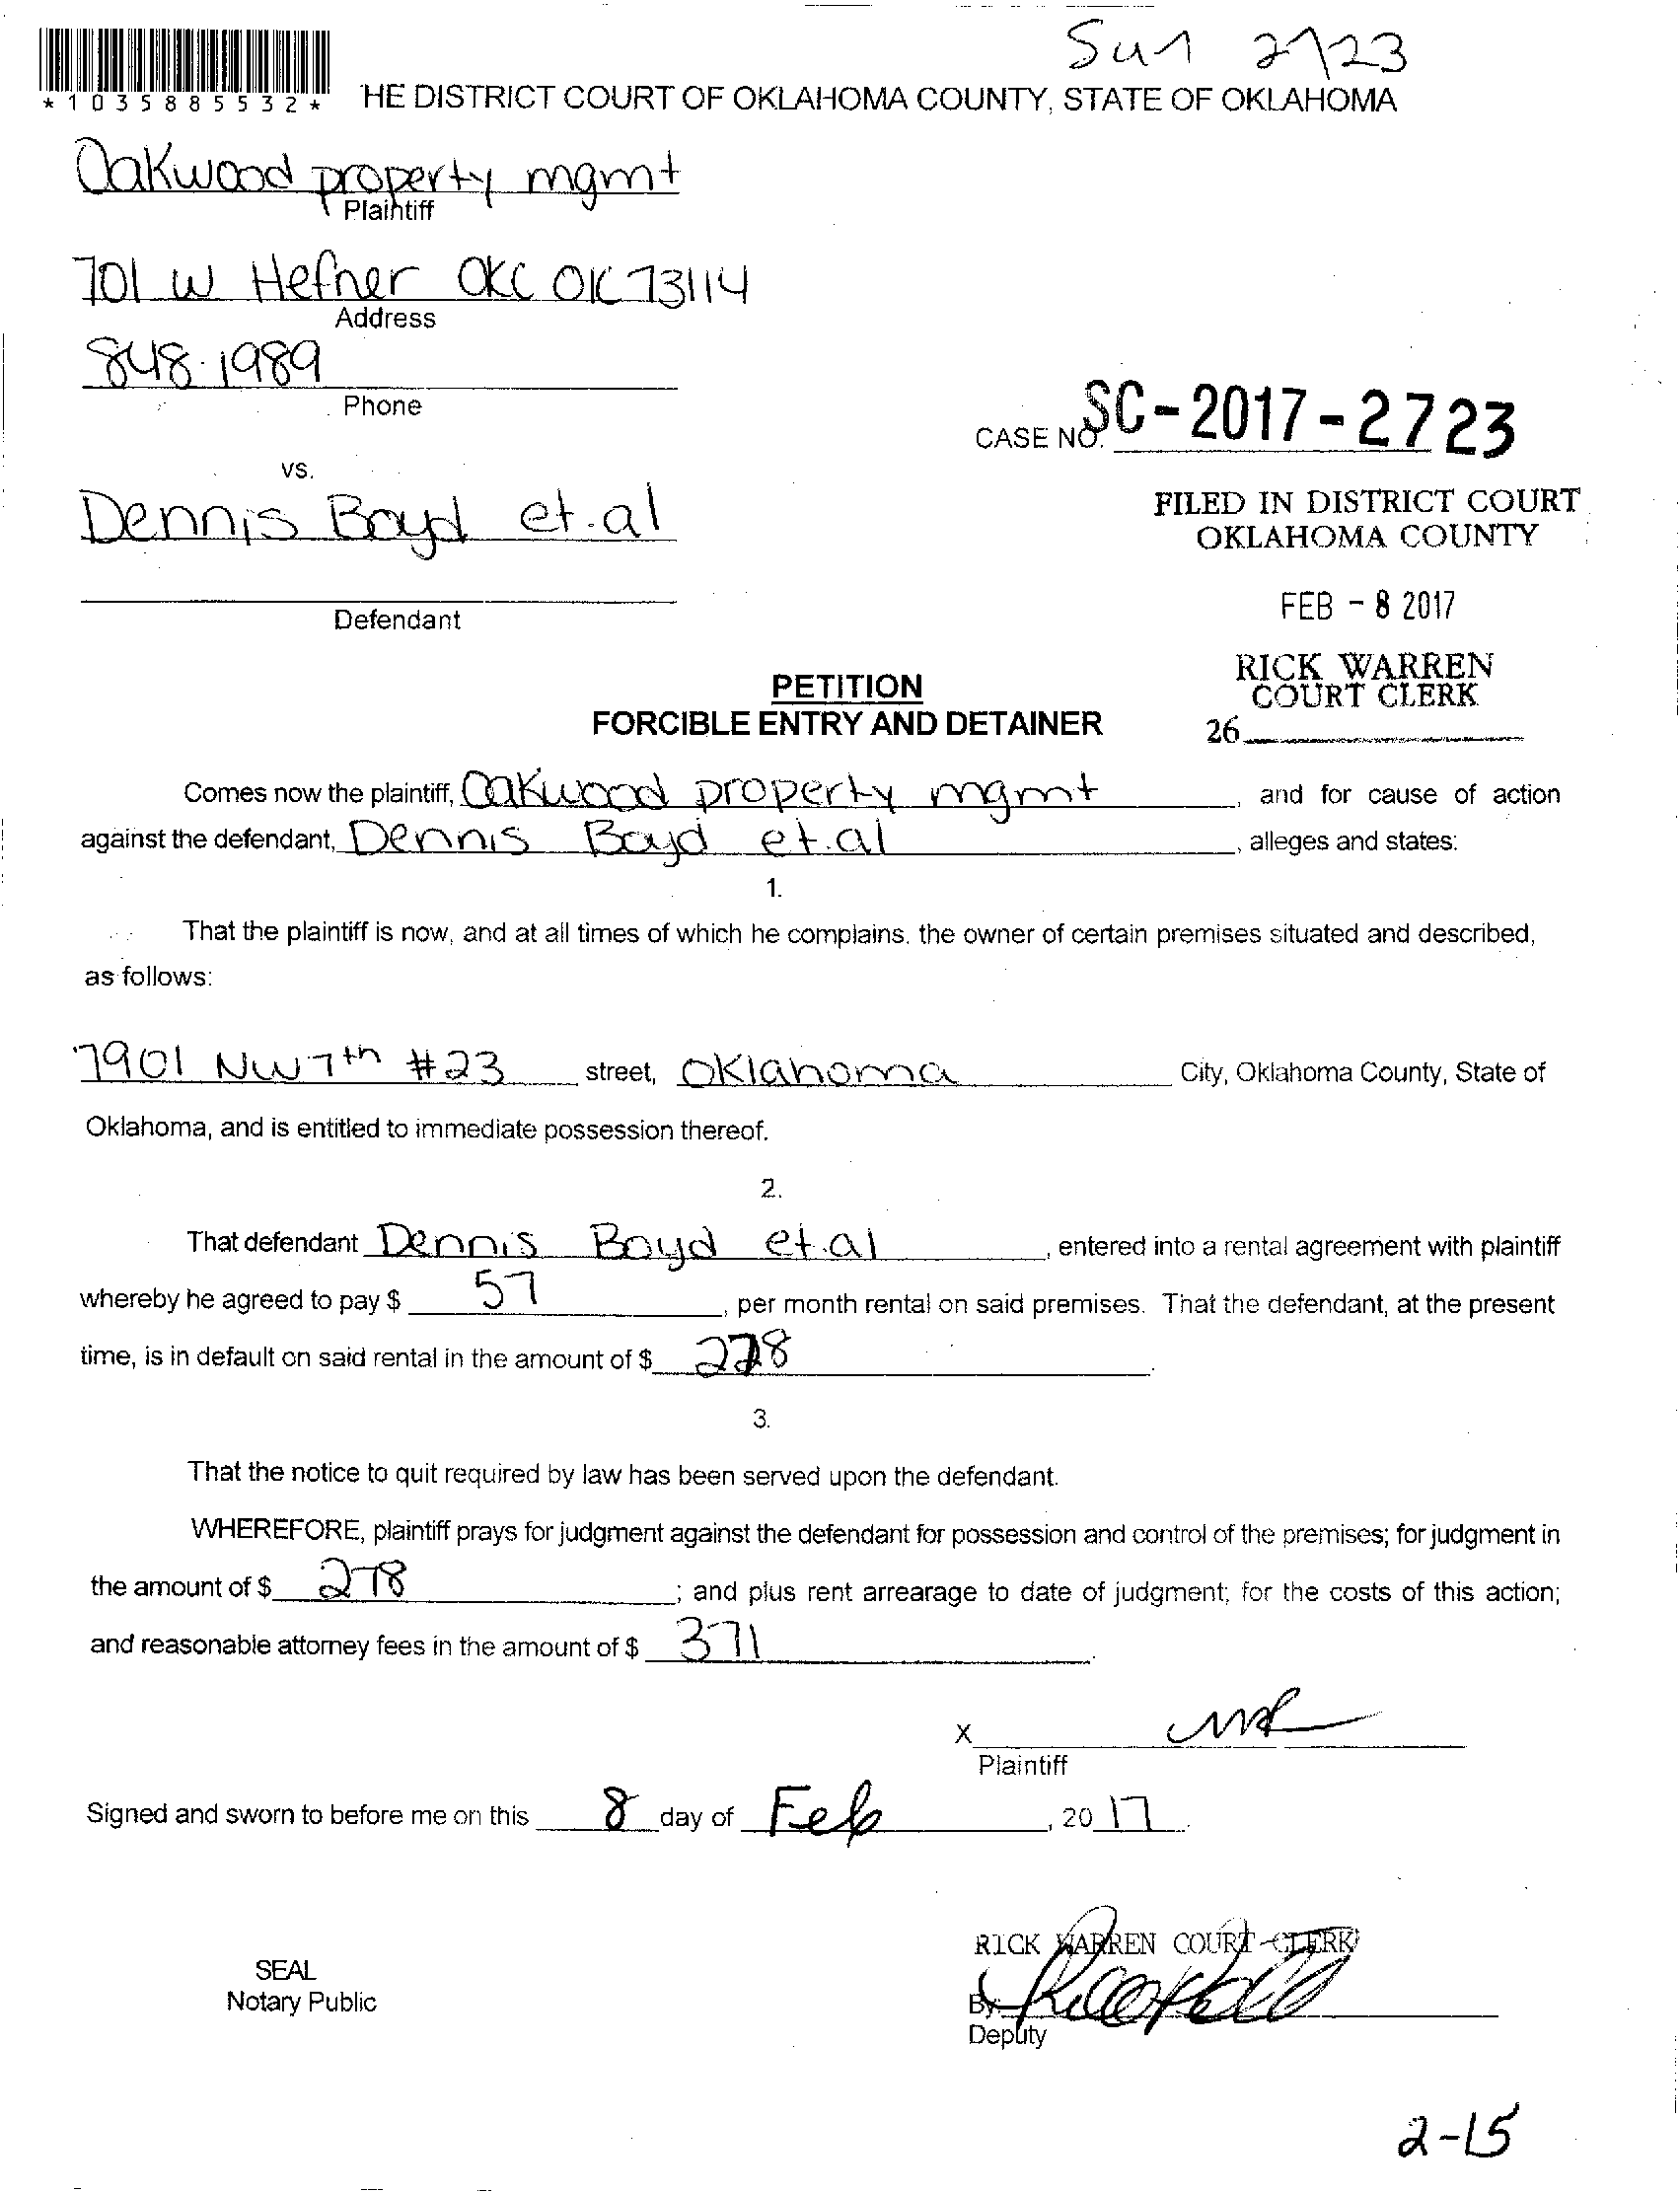 Sun 2/23
*1035885532* HE DISTRICT COURT OF OKLAHOMA COUNTY, STATE OF OKLAHOMA
Oakwood property mgmt
Plaintiff
701 W Hefner OKC OK 73114
Address
848-1989
Phone
CASE NO. SC-2017-2723
vs.
Dennis Boyd et.al
FILED IN DISTRICT COURT
OKLAHOMA COUNTY
FEB - 8 2017
Defendant
RICK WARREN
COURT CLERK
26
PETITION
FORCIBLE ENTRY AND DETAINER
Comes now the plaintiff, Oakwood property mgmt, and for cause of action
against the defendant, Dennis Boyd et.al, alleges and states:
1.
That the plaintiff is now, and at all times of which he complains, the owner of certain premises situated and described,
as follows:
7901 NW 7th #23 street, Oklahoma City, Oklahoma County, State of
Oklahoma, and is entitled to immediate possession thereof.
2.
That defendant Dennis Boyd et.al, entered into a rental agreement with plaintiff
whereby he agreed to pay $ 57, per month rental on said premises. That the defendant, at the present
time, is in default on said rental in the amount of $ 278.
3.
That the notice to quit required by law has been served upon the defendant.
WHEREFORE, plaintiff prays for judgment against the defendant for possession and control of the premises; for judgment in
the amount of $ 278; and plus rent arrearage to date of judgment; for the costs of this action;
and reasonable attorney fees in the amount of $ 371.
X
Plaintiff
Signed and sworn to before me on this 8 day of Feb, 20 17.
RICK WARREN COURT CLERK
SEAL
Notary Public
By:
Deputy
2-15